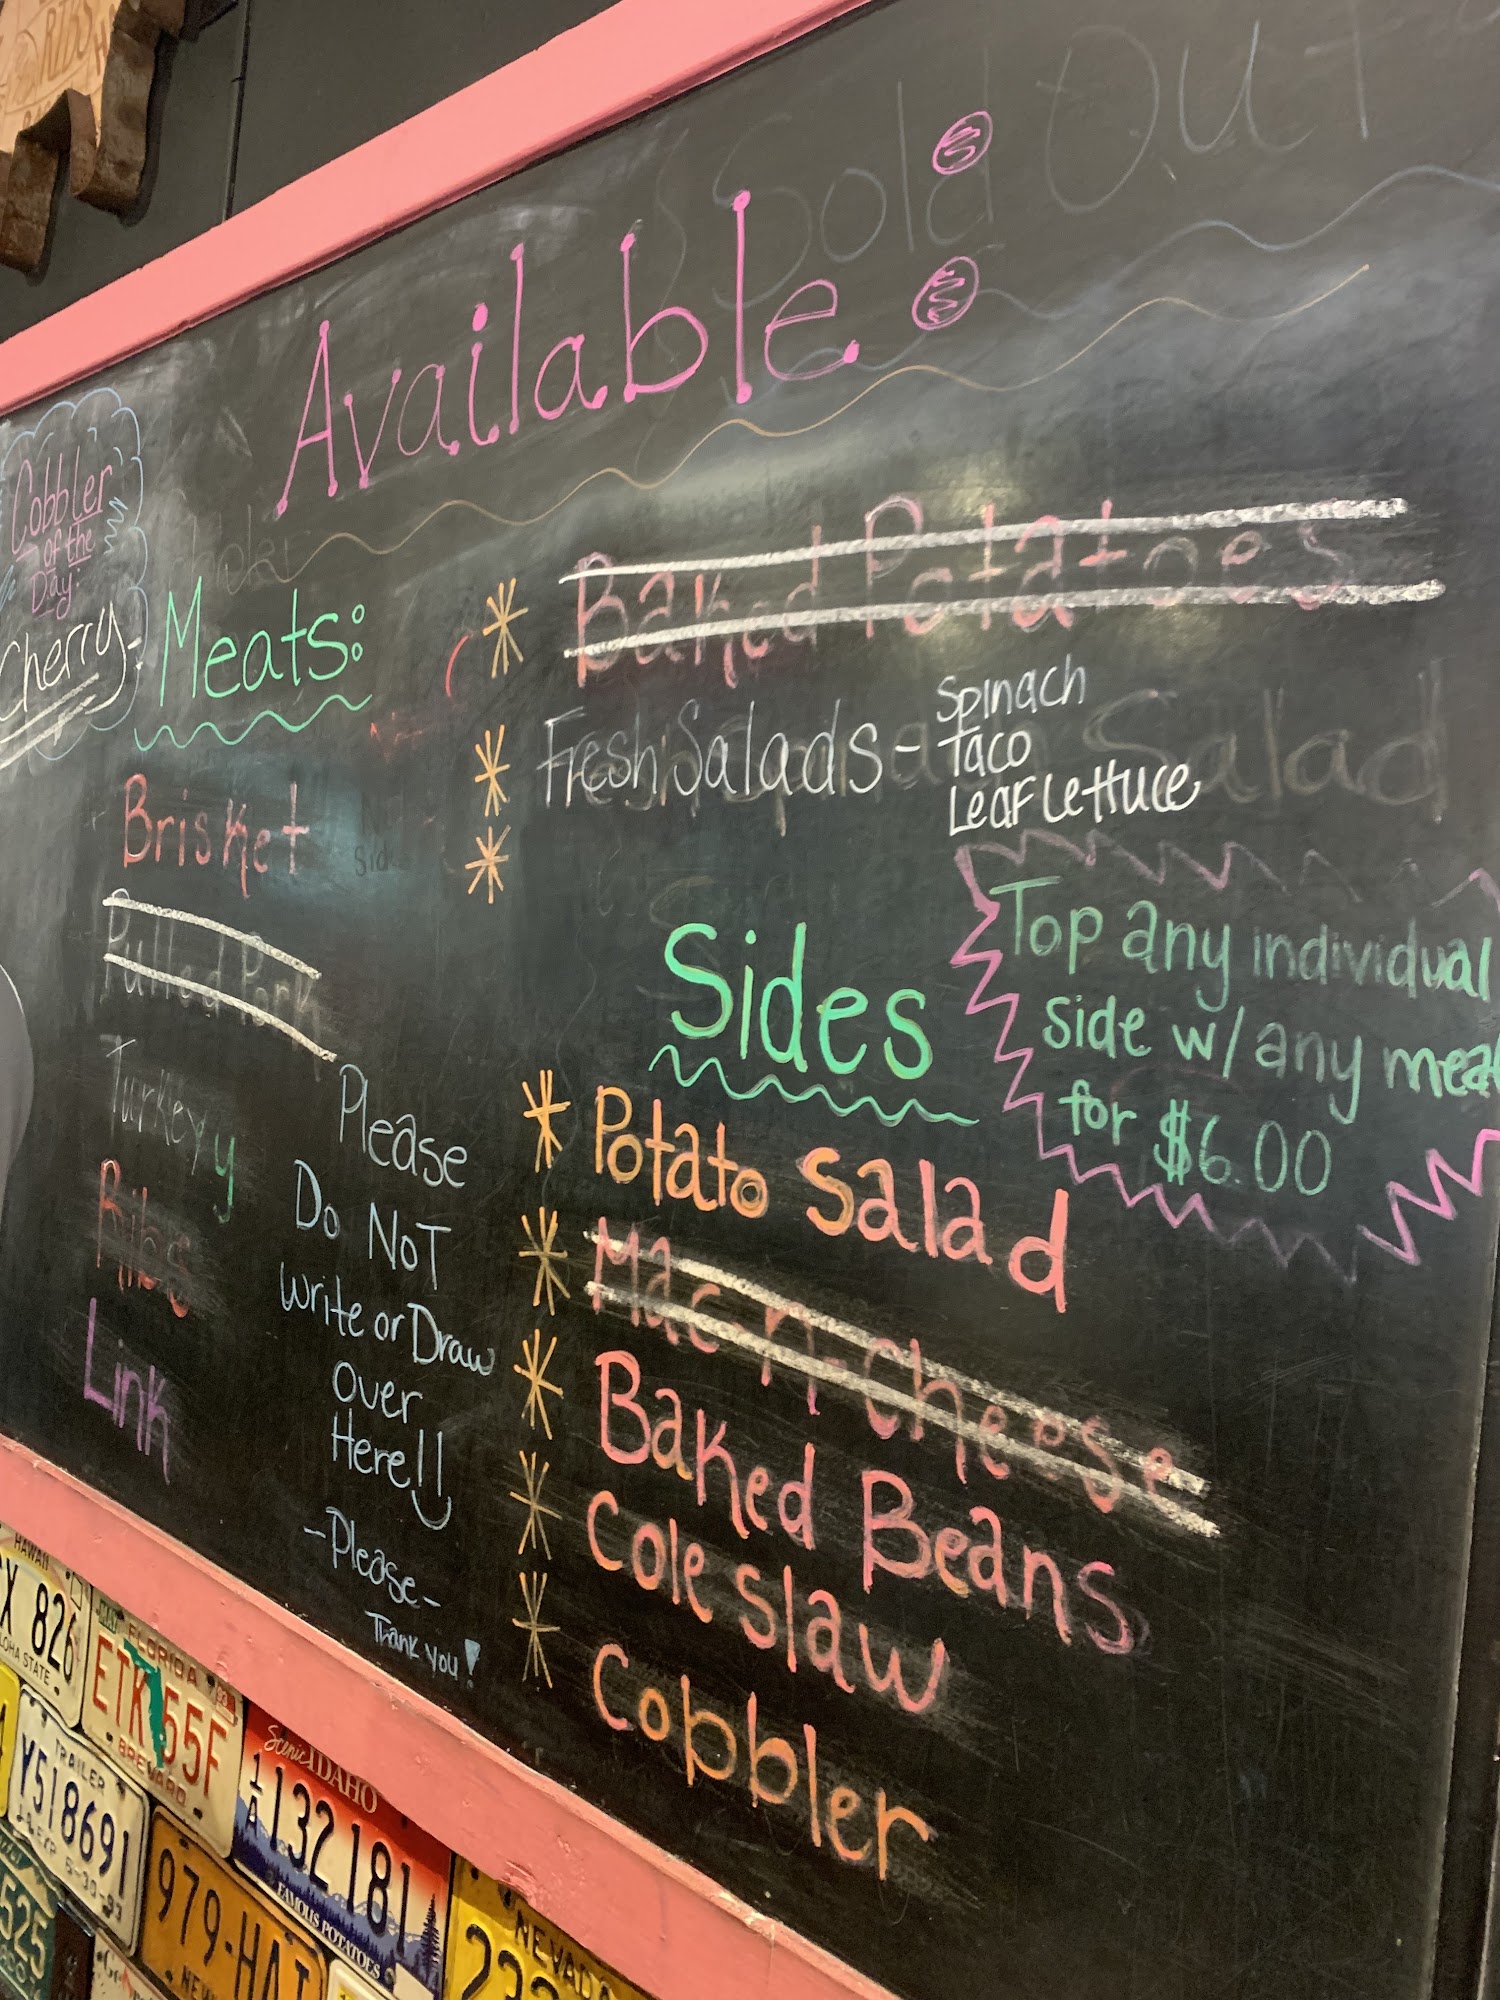 RIBS
Sold Out
Available:
Cobbler
of the
Day:
Cherry
Meats:
Brisket
Pulled Pork
Turkey y
Ribs
Link
Please
Do NOT
Write or Draw
over
Here!!
-Please-
Thank you!
Baked Potatoes
Fresh Salads - Spinach
Taco
Leaf Lettuce
Salad
Sides
Top any individual
side w/ any meat
for $6.00
Potato Salad
Mac-n-Cheese
Baked Beans
Cole slaw
Cobbler
HAWAII
X 826
ALOHA STATE
FLORIDA
ETK 55F
BREVARD
TRAILER
Y518691
EXP 6-30-93
Scenic IDAHO
1A 132181
FAMOUS POTATOES
979-HAI
NEVADA
525